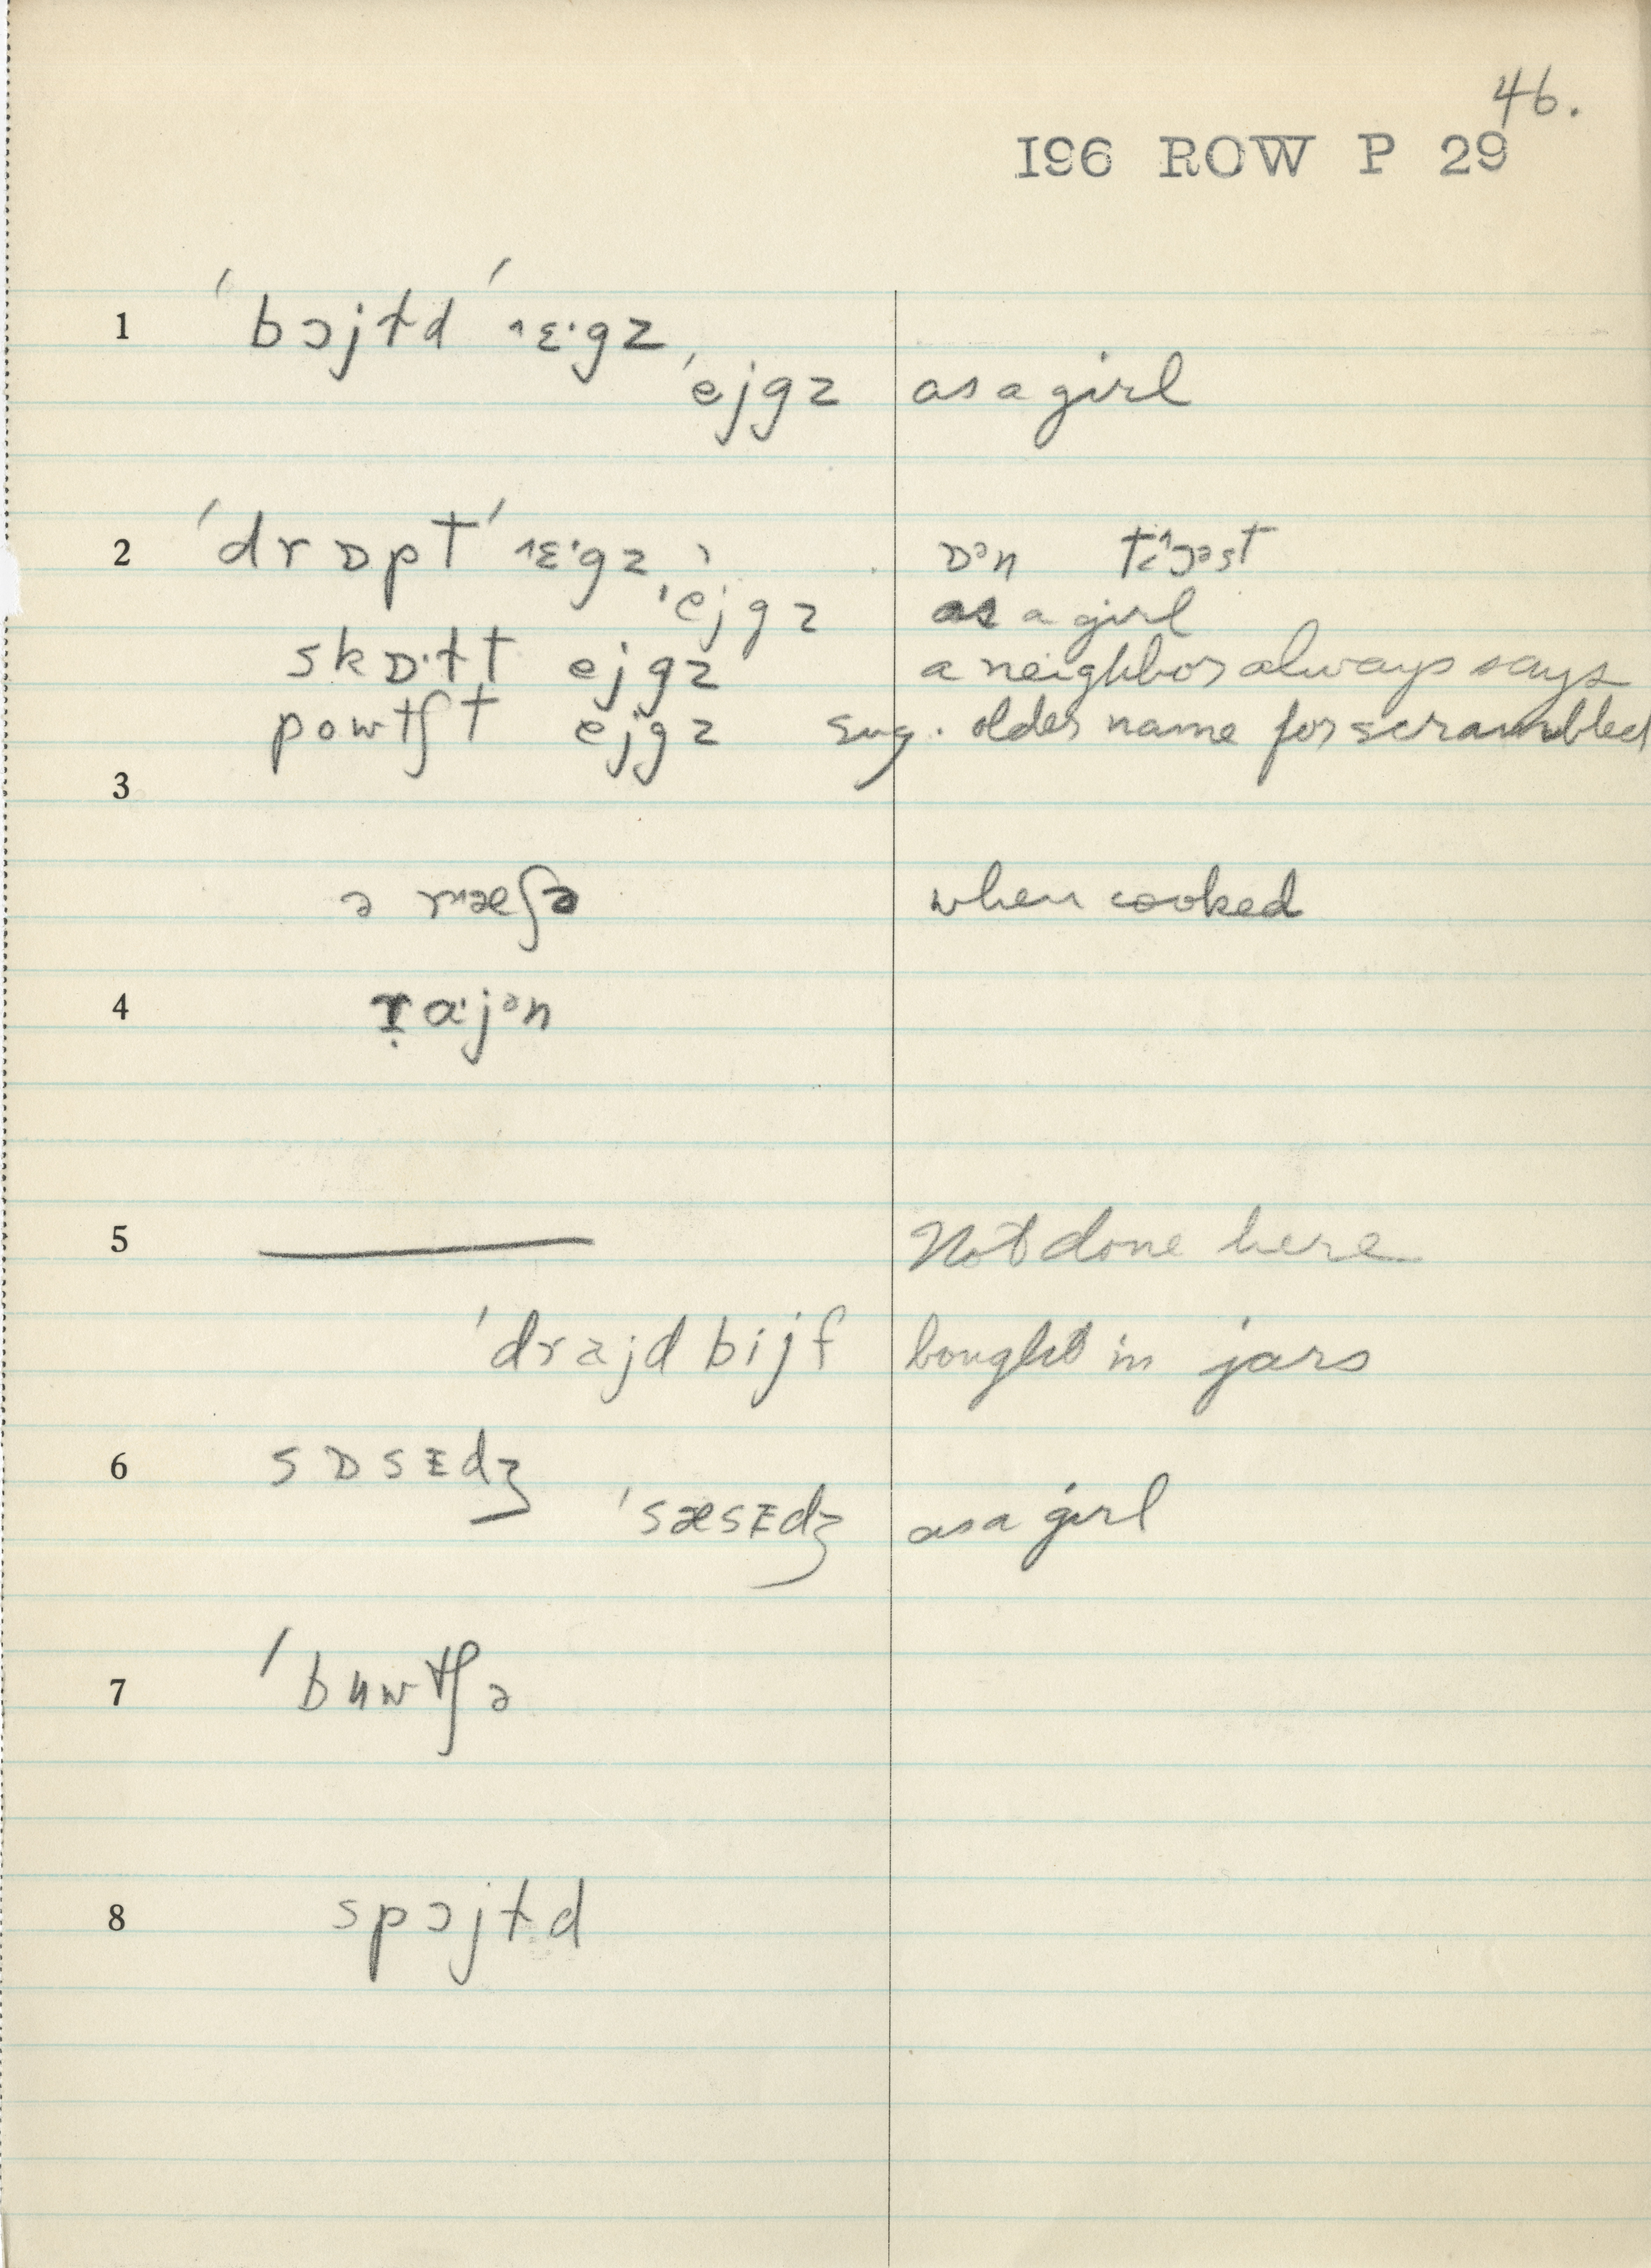 46.
196 ROW P 29
1 ˈbɔjɫd ˈ˄ɛ·gz
ˈejgz as a girl
2 ˈdrɒpt ˈ˄ɛ·gz ɒᵊn
ˈejgz as a girl
skɒ·ɫt ejgz a neighbor always says
powtʃt ejgz sug. older name for scrambled
3
ə ræʃə when cooked
4 ɑ·jᵊn
5 ——— Not done here
ˈdrajd bijf bought in jars
6 sɒsɪdʒ
ˈsæsɪdʒ as a girl
7 ˈbʜwtʃə
8 spɔjɫd